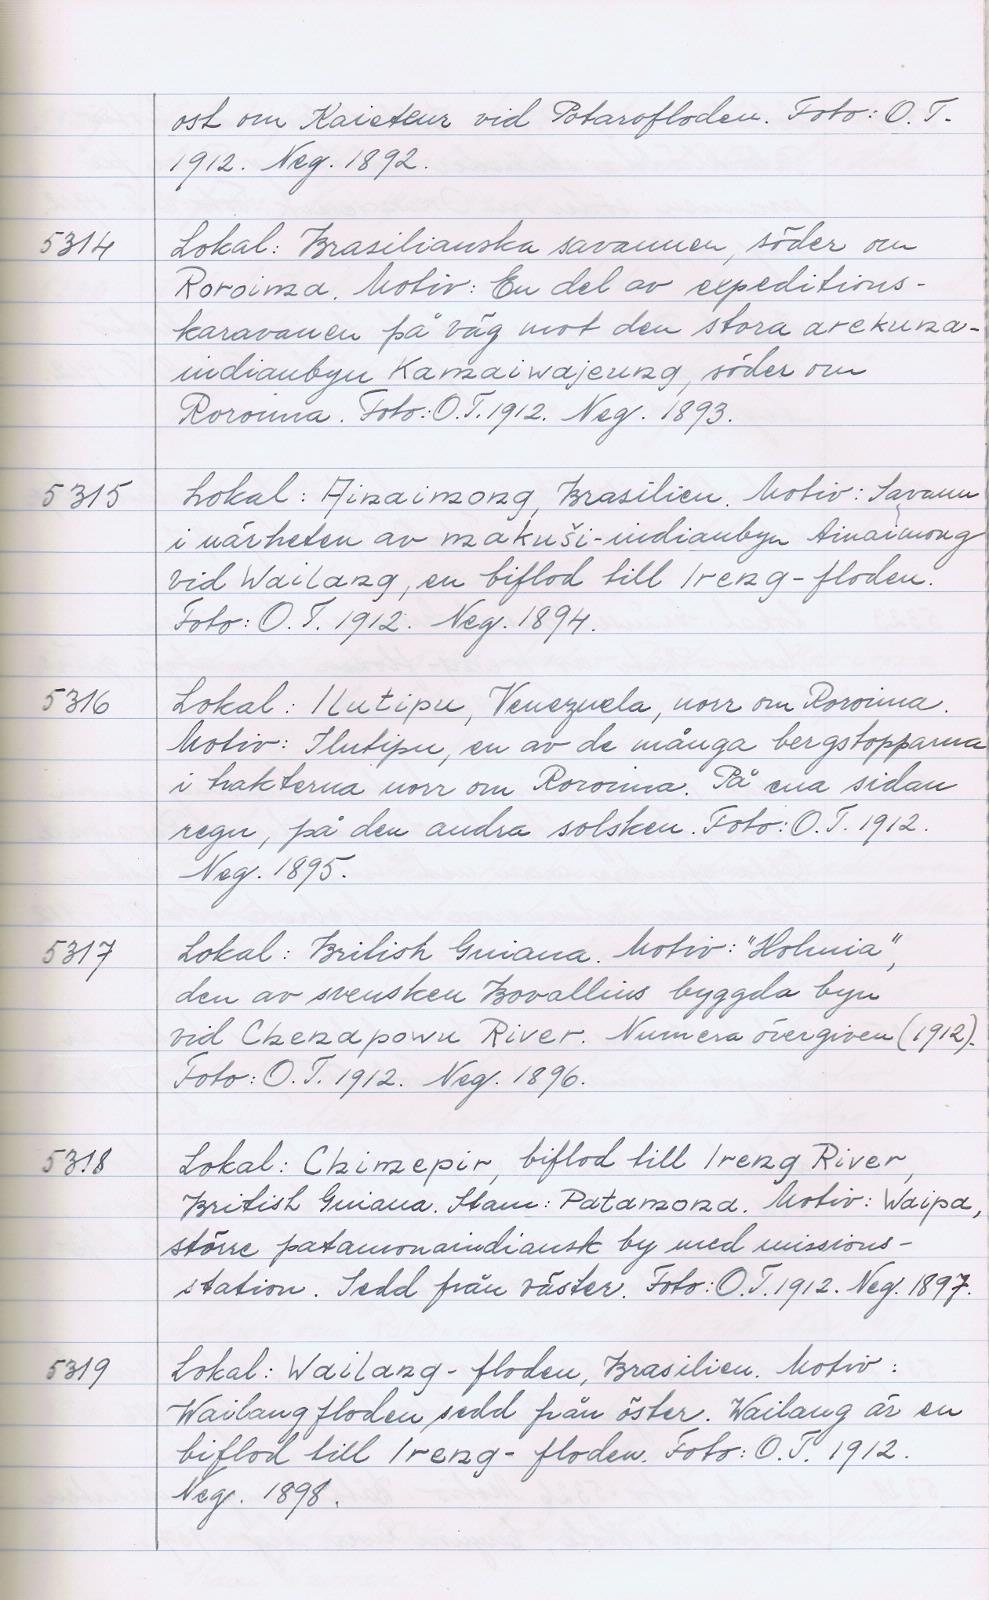 ost om Kaieteur vid Potarofloden. Foto: O.T.
1912. Neg. 1892.
5314 Lokal: Brasilianska savannen, söder om
Roroima. Motiv: En del av expeditions-
karavanen på väg mot den stora arekuna-
indianbyn Kamaiwajeung, söder om
Roroima. Foto: O.T. 1912. Neg. 1893.
5315 Lokal: Ainaimong, Brasilien. Motiv: Savann
i närheten av makuši-indianbyn Ainaimong
vid Wailang, en biflod till Ireng-floden.
Foto: O.T. 1912. Neg. 1894.
5316 Lokal: Ilutipu, Venezuela, norr om Roroima.
Motiv: Ilutipu, en av de många bergstopparna
i trakterna norr om Roroima. På ena sidan
regn, på den andra solsken. Foto: O.T. 1912.
Neg. 1895.
5317 Lokal: British Guiana. Motiv: "Holmia",
den av svensken Bovallius byggda byn
vid Chenapowu River. Numera övergiven (1912).
Foto: O.T. 1912. Neg. 1896.
5318 Lokal: Chimepir, biflod till Ireng River,
British Guiana. Stam: Patamona. Motiv: Waipa,
större patamonaindiansk by med missions-
station. Sedd från väster. Foto: O.T. 1912. Neg. 1897.
5319 Lokal: Wailang-floden, Brasilien. Motiv:
Wailangfloden sedd från öster. Wailang är en
biflod till Ireng-floden. Foto: O.T. 1912.
Neg. 1898.